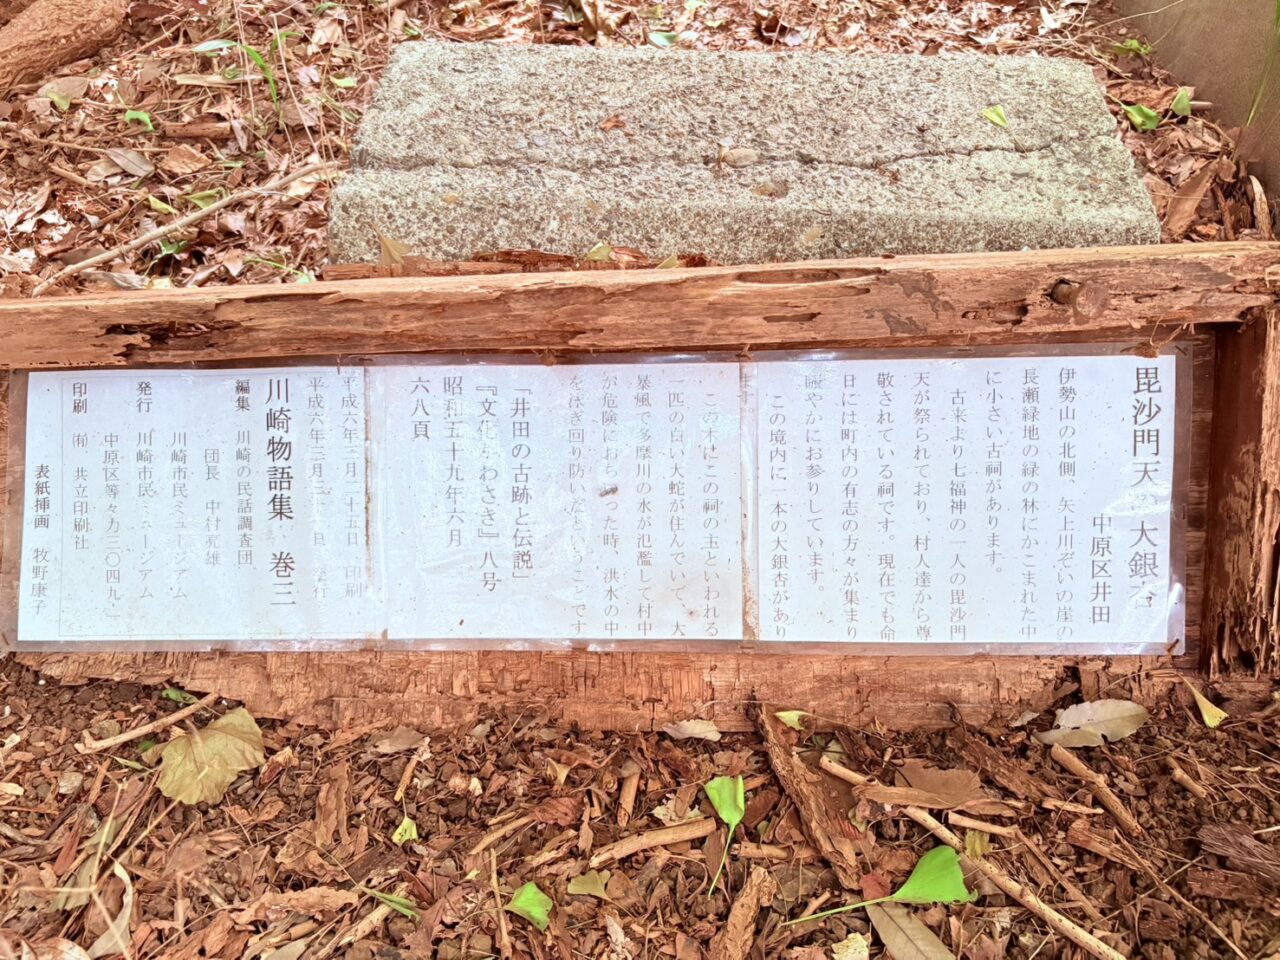 毘沙門天 大銀杏
中原区井田
伊勢山の北側、矢上川ぞいの崖の
長瀬緑地の緑の林にかこまれた中
に小さい古祠があります。
古来より七福神の一人の毘沙門
天が祭られており、村人達から尊
敬されている祠です。現在でも命
日には町内の有志の方々が集まり
賑やかにお参りしています。
この境内に一本の大銀杏があり
ます。
この木はこの祠の主といわれる
一匹の白い大蛇が住んでいて、大
暴風で多摩川の水が氾濫して村中
が危険におちいった時、洪水の中
を泳ぎ回り防いだということです
「井田の古跡と伝説」
『文化かわさき』八号
昭和五十九年六月
六八頁
平成六年三月二十五日 印刷
平成六年三月三 日 発行
川崎物語集 巻三
編集 川崎の民話調査団
団長 中村亮雄
川崎市民ミュージアム
発行 川崎市民ミュージアム
中原区等々力三〇四九‐一
印刷 ㈲ 共立印刷社
表紙挿画 牧野康子